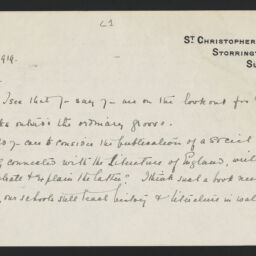 c1
ST CHRISTOPHER
STORRINGT
SU
1919.
I see that you say you are on the look out for
outside the ordinary groove.
you care to consider the publication of a social
connected with the Literature of England, writ
& explain the latter? I think such a book nee
, our schools still teach history & literature in wat